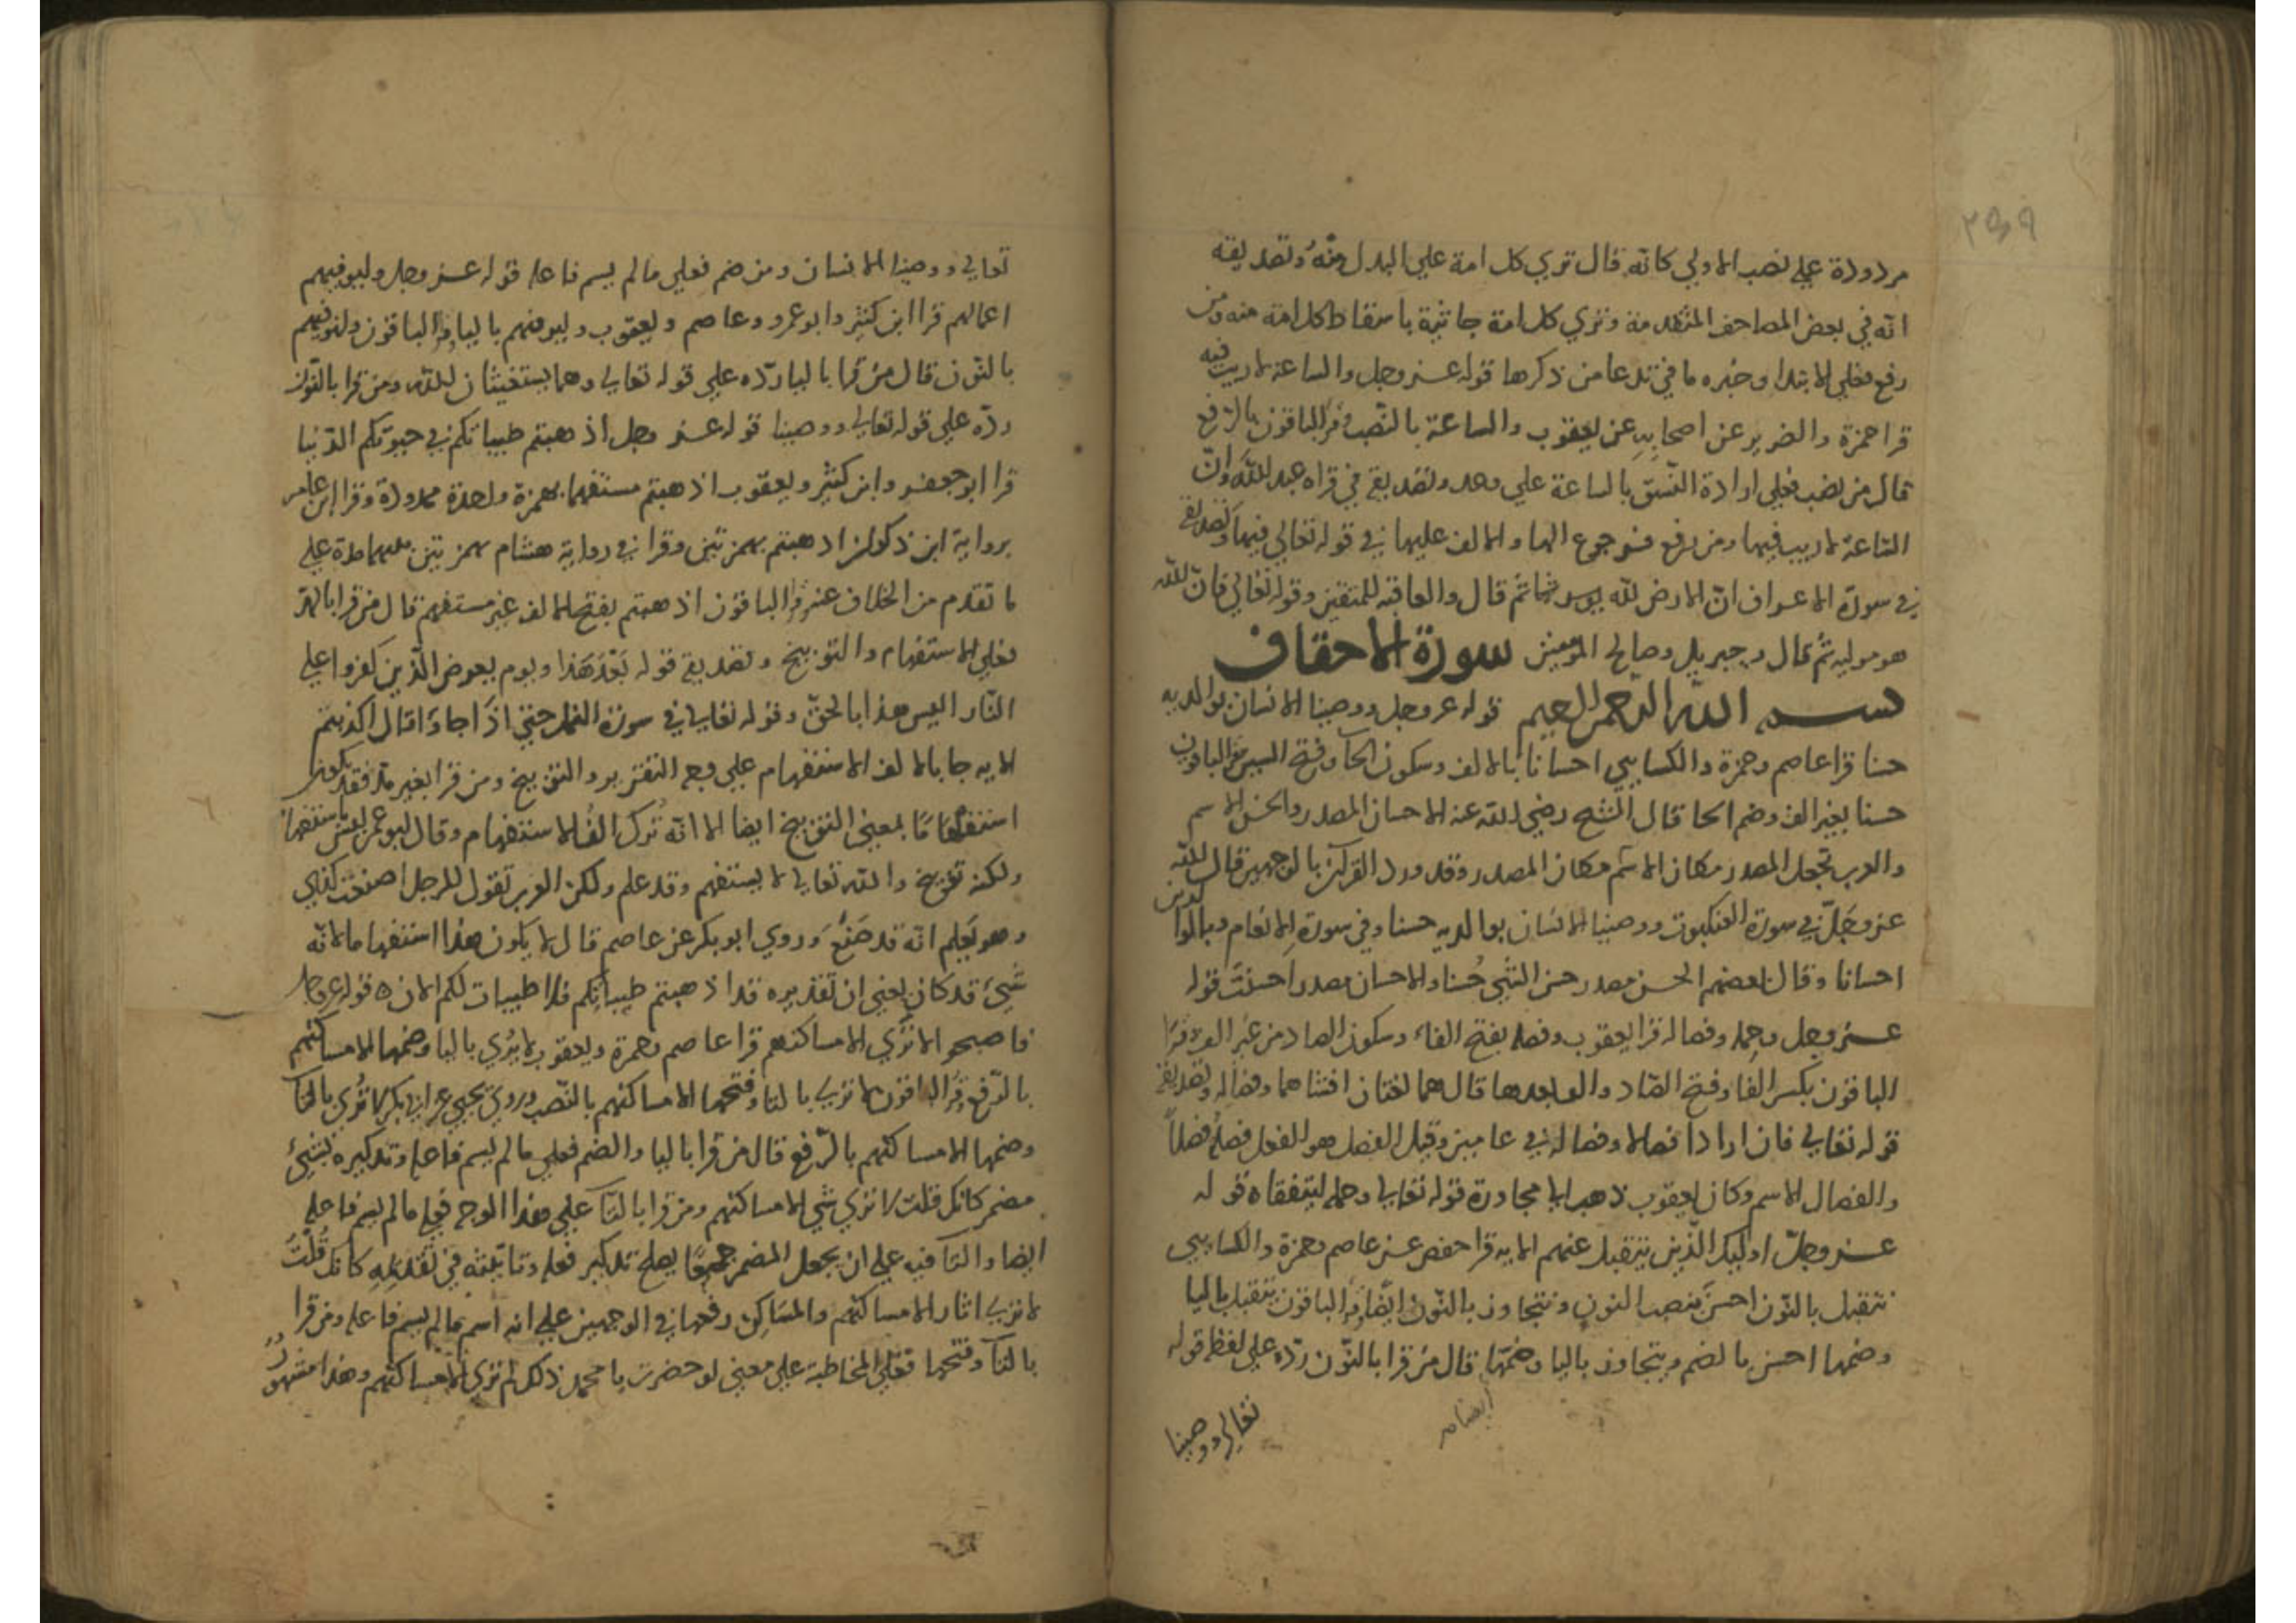 ٢٩٩
مردودة علي نصب الاولي كانه قال تري كل امة علي البدل منه وتصديقه
انه في بعض المصاحف المتقدمة وتري كل امة جاثية باسقاط كل امة منه ومن
رفع فعلي الابتدا وخبره ما في تدعا من ذكرها قوله عز وجل والساعة لا ريب فيه
قرا حمزة والضرير عن اصحابه عن يعقوب والساعة بالنصب وقرا الباقون بالرفع
قال من نصب فعلي ارادة النسق بالساعة علي وعد وتصديقه في قراه عبد الله وان
الساعة لا ريب فيها ومن رفع فرجوع الها والالف عليها في قوله تعالي فيها وتصديقه
في سورة الاعراف ان الارض لله يورثها ثم قال والعاقبه للمتقين وقوله تعالي فان الله
هو موليه ثم قال وجبريل وصالح المؤمنين سورة الاحقاف
بسم الله الرحمن الرحيم قوله عز وجل ووصينا الانسان بوالديه
حسنا قرا عاصم وحمزة والكسايي احسانا بالالف وسكون الحآ وفتح السين وقرا الباقون
حسنا بغير الف وضم الحا قال الشيخ رضي الله عنه الاحسان المصدر والحسن الاسم
والعرب تجعل المصدر مكان الاسم والاسم مكان المصدر وقد ورد القرآن بالوجهين قال الله
عز وجل في سورة العنكبوت ووصينا الانسان بوالديه حسنا وفي سورة الانعام وبالوالدين
احسانا وقال بعضهم الحسن مصدر حسن الشي حسنا والاحسان مصدر احسنت قوله
عز وجل وحمله وفصاله قرا يعقوب وفصله بفتح الفاء وسكون الصاد من غير الف وقرا
الباقون بكسر الفا وفتح الصاد والف بعدها قال هما لغتان وتصديقه
قوله تعالي فان ارادا فصالا وفصاله في عامين وقيل الفصل هو الفعل فصله فصلاً
والفصال الاسم وكان يعقوب ذهب الي مجاورة قوله تعالي وحمله ليتفقاه قوله
عز وجل اوليك الذين يتقبل عنهم الايه قرا حفص عن عاصم وحمزة والكسايي
نتقبل بالنون احسن بنصب النون ونتجاوز بالنون ايضا وقرا الباقون يتقبل باليا
وضمها احسن بالضم ويتجاوز باليا وضمها قال من قرا بالنون رده علي لفظ قوله
ايضا
تعالي ووصينا
تعالي ووصينا الانسان ومن ضم فعلي ما لم يسم فاعله قوله عز وجل وليوفيهم
اعمالهم قرا ابن كثير وابو عمرو وعاصم ويعقوب وليوفيهم باليا وقرا الباقون ولنوفيهم
بالنون قال من قرا باليا رده علي قوله تعالي وهما يستغيثان الله ومن قرا بالنون
رده علي قوله تعالي ووصينا قوله عز وجل اذهبتم طيباتكم في حيوتكم الدنيا
قرا ابو جعفر وابن كثير ويعقوب اذهبتم مستفهما بهمزة واحدة ممدودة وقرا ابن عامر
برواية ابن ذكوان اذهبتم بهمزتين وقرا في رواية هشام بهمزتين بينهما مدة علي
ما تقدم من الخلاف عنه وقرا الباقون اذهبتم بفتح الالف غير مستفهم قال من قرا بالمد
فعلي الاستفهام والتوبيخ وتصديقه قوله بعد هذا ويوم يعرض الذين كفروا علي
النار اليس هذا بالحق وقوله تعالي في سورة النمل حتي اذا جاؤا قال اكذبتم
الايه جا بالالف الاستفهام علي وجه التقرير والتوبيخ ومن قرا بغير مد فقد يكون
استفهاما بمعني التوبيخ ايضا الا انه ترك الف الاستفهام وقال ابو عمر ليس باستفهام
ولكنه توبيخ والله تعالي لا يستفهم وقد علم ولكن العرب تقول للرجل اصنعت كذي
وهو يعلم انه قد صنع وروي ابو بكر عن عاصم قال لا يكون هذا استفهاما لانه
شيء قد كان يعني ان تقديره قد اذهبتم طيباتكم فلا طيبات لكم الان ه قوله عز وجل
فاصبحوا لا تري الا مساكنهم قرا عاصم وحمزة ويعقوب لا يري باليا وضمها الا مساكنهم
بالرفع وقرا الباقون لا تري بالتا وفتحها الا مساكنهم بالنصب وروي يحيي عن ابي بكر لا تري بالتآ
وضمها الا مساكنهم بالرفع قال من قرا باليا والضم فعلي ما لم يسم فاعله وتذكيره بشيء
مضمر كانك قلت لا تري شي الا مساكنهم ومن قرا بالتآ علي هذا الوجه فعلي ما لم يسم فاعله
ايضا والتا فيه علي ان يجعل المضمر جميعا يصلح تذكير فعله وتانيثه في تقدمه كانك قلت
لا تري اثار الا مساكنهم والمساكن رفعها في الوجهين علي انه اسم ما لم يسم فاعله ومن قرا
بالتآ وفتحها فعلي المخاطبة علي معني لو حضرت يا محمد ذلك لم تري الا مساكنهم وهذا مشهور